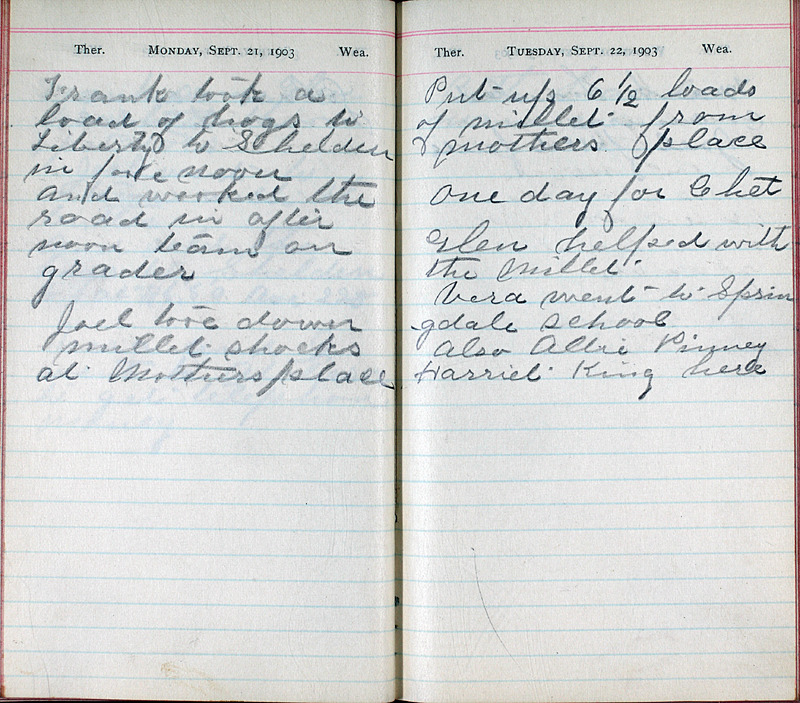 Ther. MONDAY, SEPT. 21, 1903 Wea.
Frank took a
load of hogs to
Liberty to Schelden
in fore noon
and worked the
road in after
noon team on
grader
Joel tore down
millet shocks
at Mothers place
Ther. TUESDAY, SEPT. 22, 1903 Wea.
Put up 6 1/2 loads
of millet from
mothers place
One day for Chet
Glen helped with
the millet
Vera went to Sprin
gdale school
also Allie Pinney
Harriet King here